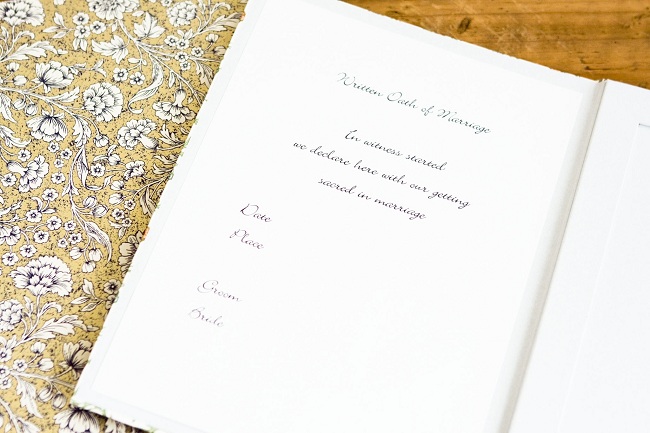 Written Oath of Marriage
In witness started
we declare here with our getting
sacred in marriage
Date
Place
Groom
Bride